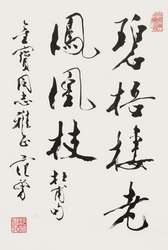 碧梧棲老
鳳凰枝 杜甫句
金寶同志雅正